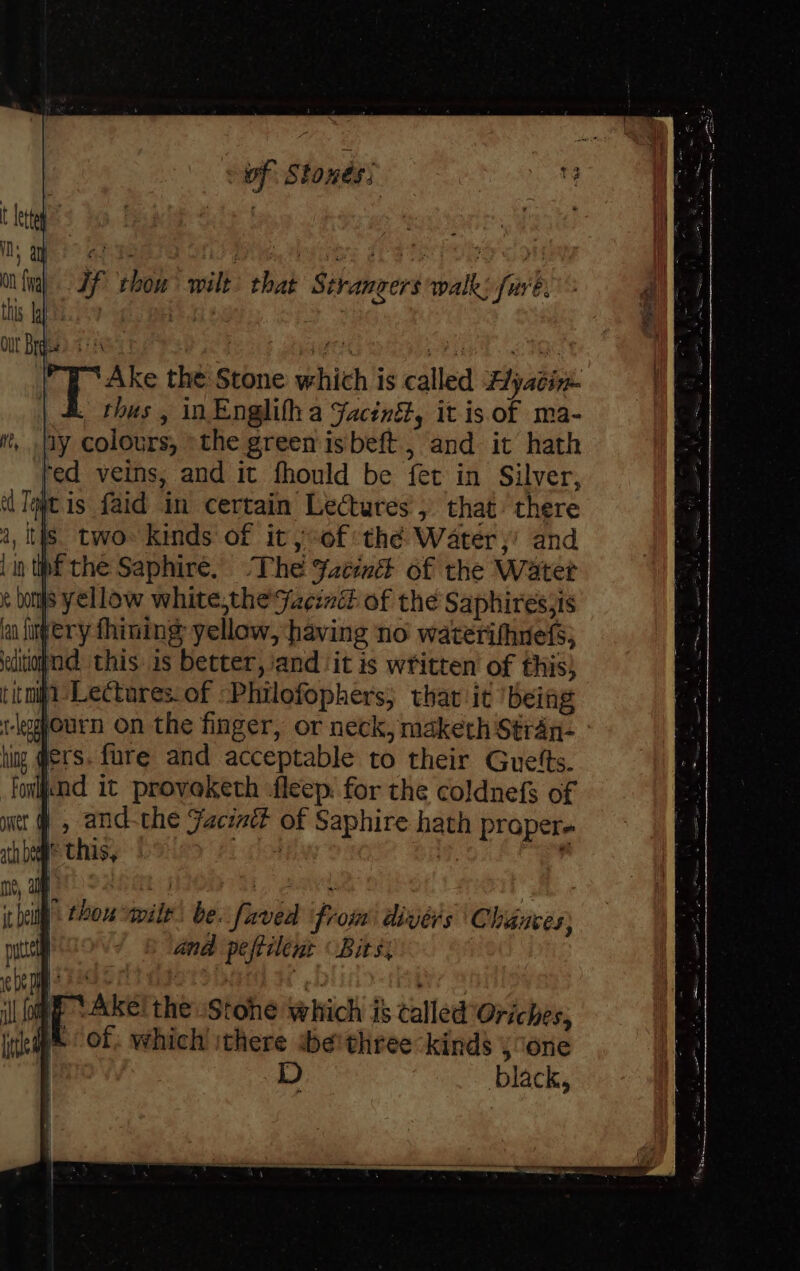 of Stones. 13
If thou wilt that Strangers walk ſure.
TAke the Stone which is called Hyacin-
thus, in Engliſh a Jacinct, it is of ma-
ny colours, the green is beſt, and it hath
red veins, and it ſhould be ſet in Silver,
it is ſaid in certain Lectures, that there
is two kinds of it, of the Water, and
of the Saphire. The Jacinct of the Water
is yellow white, the Jacinct of the Saphires, is
very ſhining yellow, having no wateriſhneſs,
and this is better, and it is written of this,
in Lectures of Philoſophers, that it being
bourn on the finger, or neck, maketh Stran-
gers ſure and acceptable to their Gueſts.
And it provoketh ſleep for the coldneſs of
, and the Jacinct of Saphire hath proper-
this,
thou wilt be ſaved from divers Chances,
and peſtilent Bits,
TAke the Stone which is called Oriches,
of which there be three kinds, one
D black,
t letter
this